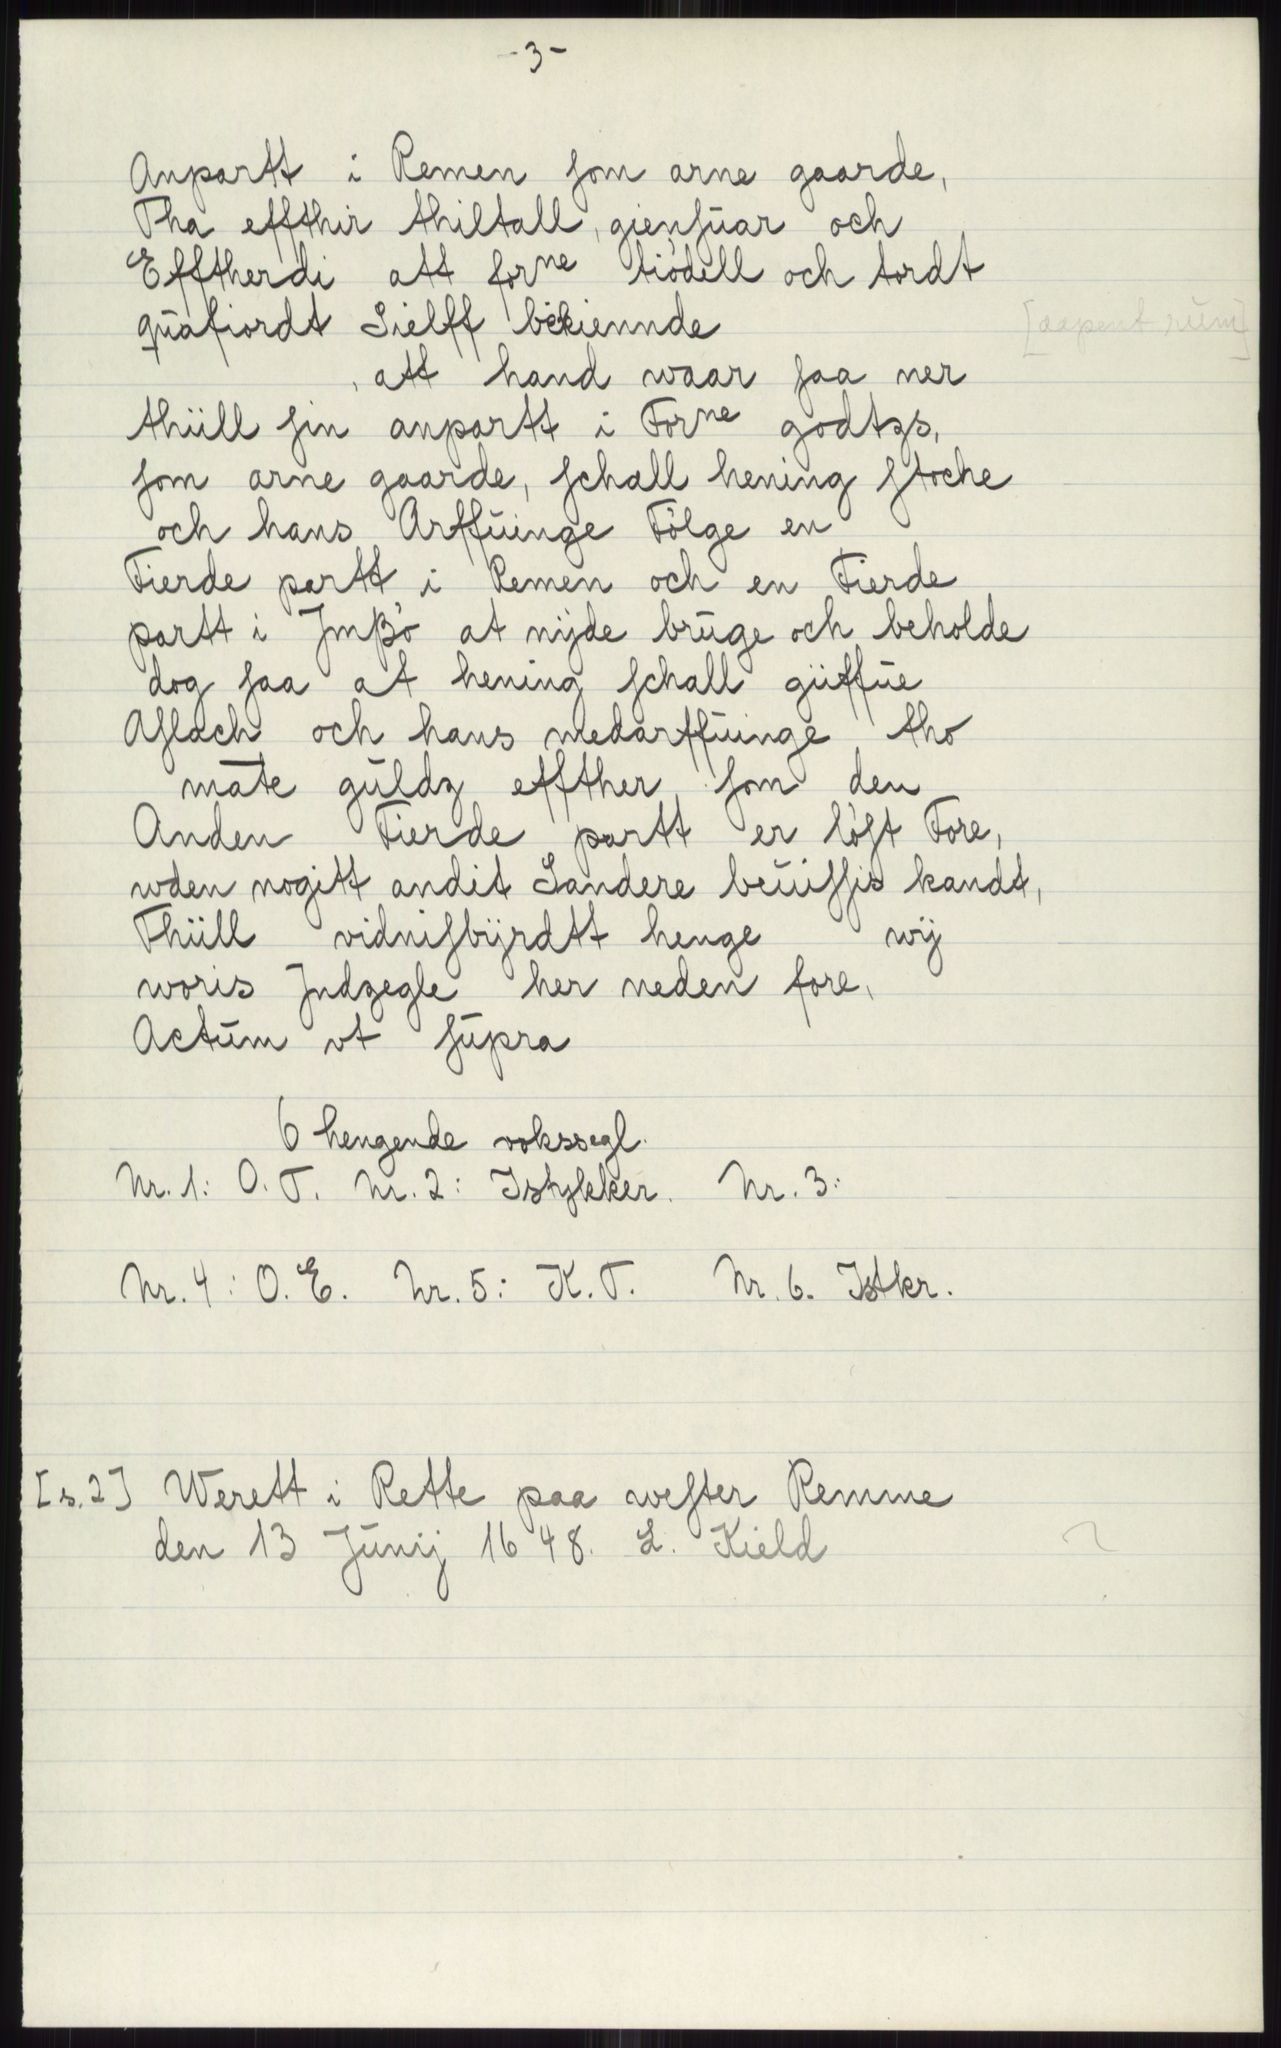 -3-
Anpartt i Remen som arne gaarde,
Tha effthir thiltall, giensuar och
Efftherdi att forne tiødell och tordt
quafiordt Sielff bekiennde [aapent rum]
, att hand waar saa ner
thiill sin anpartt i Forne godtzs,
som arne gaarde, schall hening stoche
och hans Arffuinge Følge en
Fierde partt i Remen och en Fierde
partt i Jmßø at nijde bruge och beholde
dog saa at hening schall giiffue
Aslach och hans medarffuinge tho
mate guldz effther som den
Anden Fierde partt er løst Fore,
wden nogitt andit Sandere beuissis kandt,
Thiill vidnisbyrdtt henge wij
woris Jndzegle her neden fore,
Actum vt supra
6 hengende vokssegl.
Nr. 1: O. T. Nr. 2: Istykker. Nr. 3:
Nr. 4: O. E. Nr. 5: K. T. Nr. 6. Istkr.
[s. 2] Werett i Rette paa wester Remme
den 13 Junij 1648. L. Kield